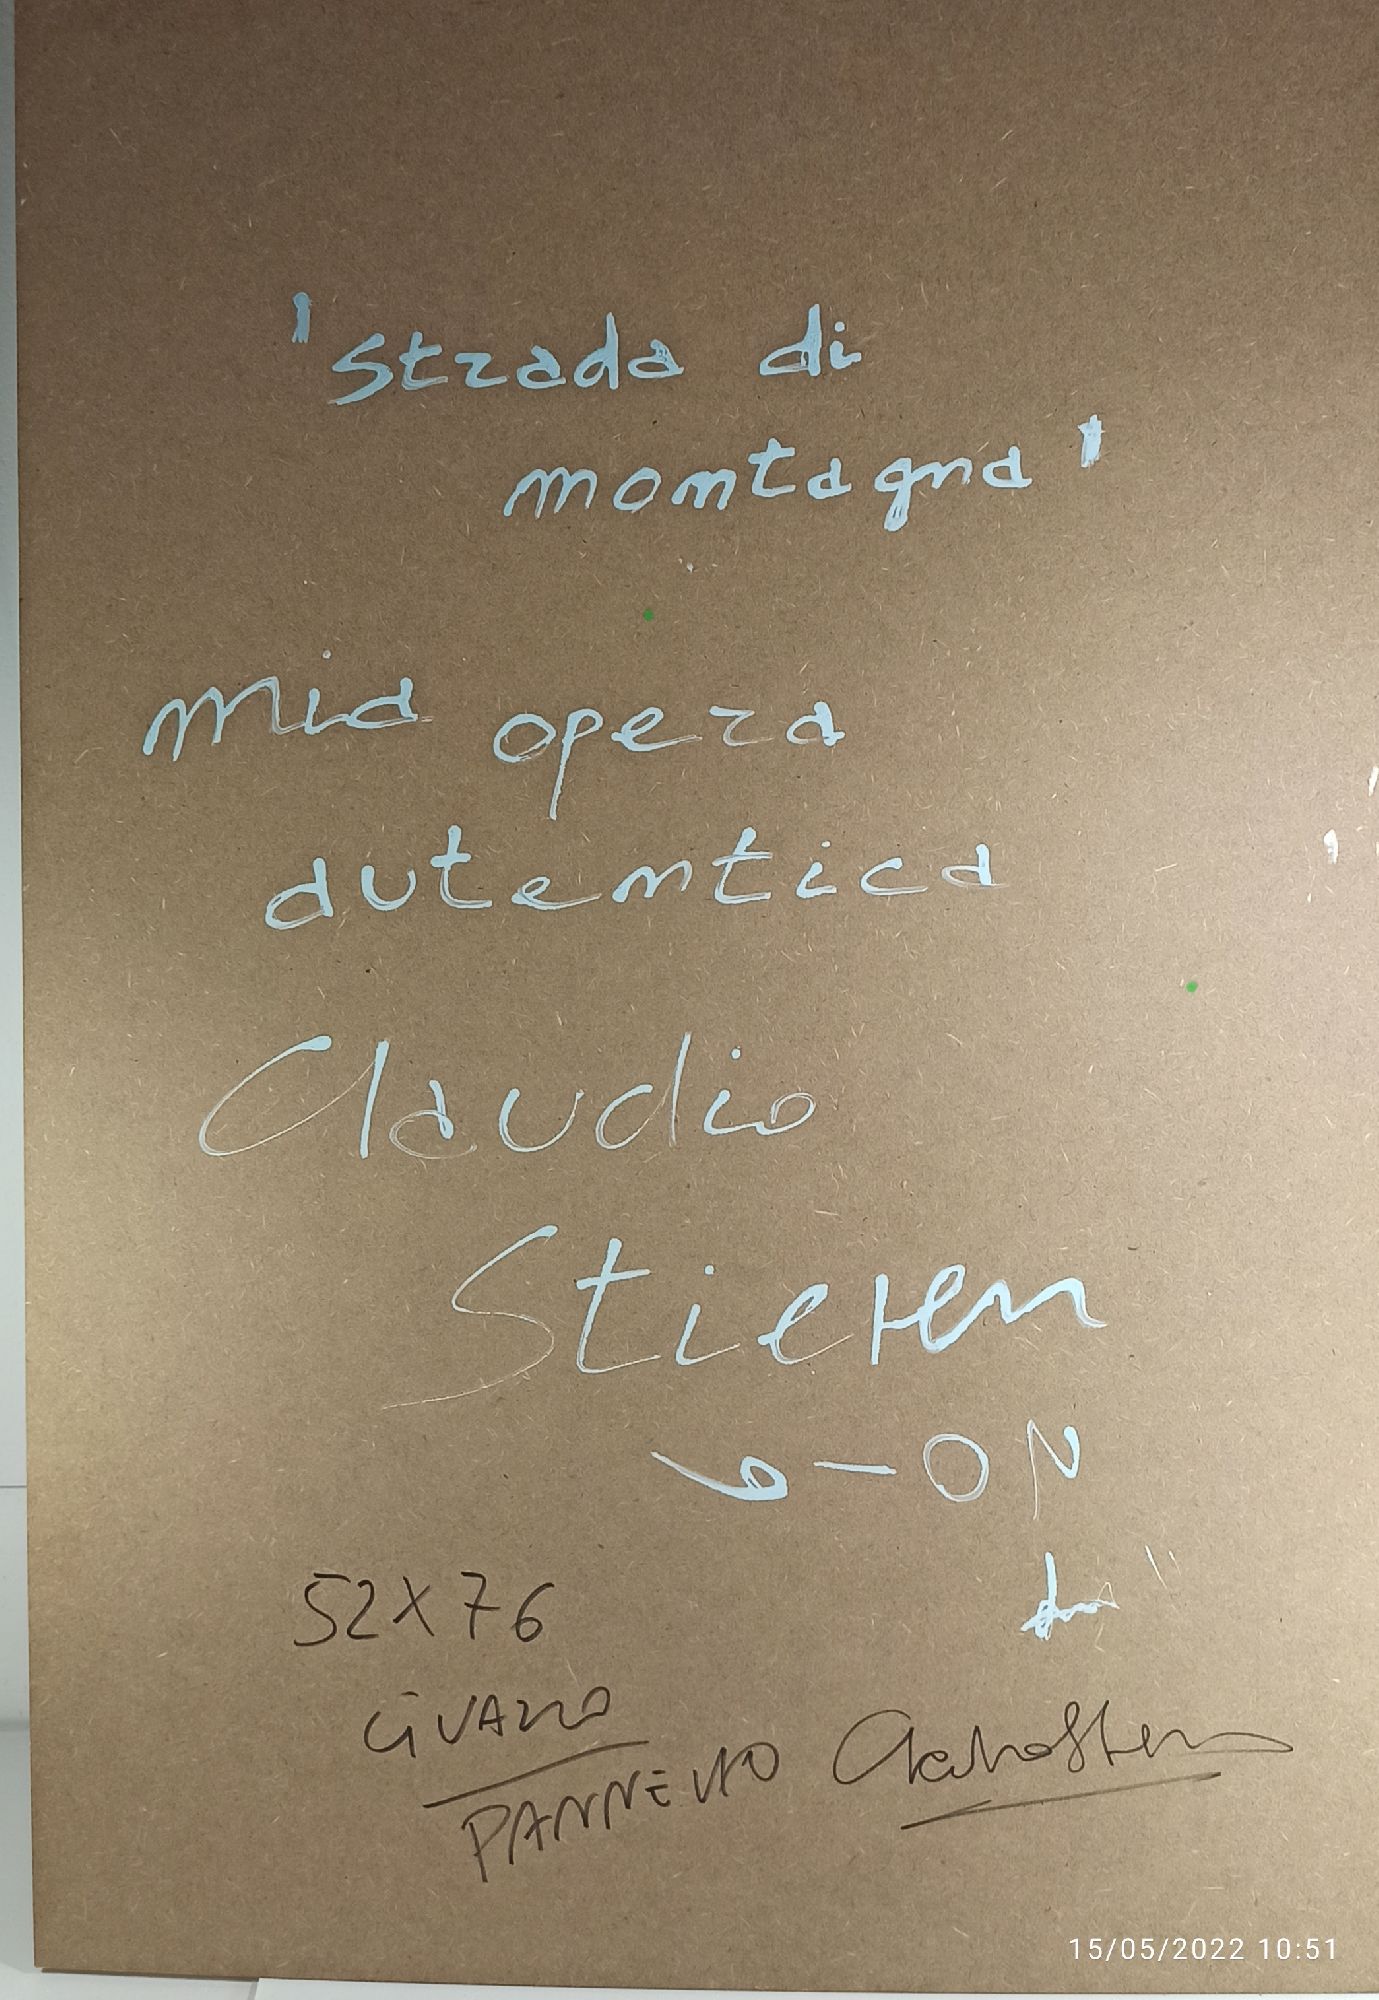 'strada di
montagna'
mia opera
autentica
Claudio
Stieren
ON
52X76
PANNELLO
15/05/2022 10:51